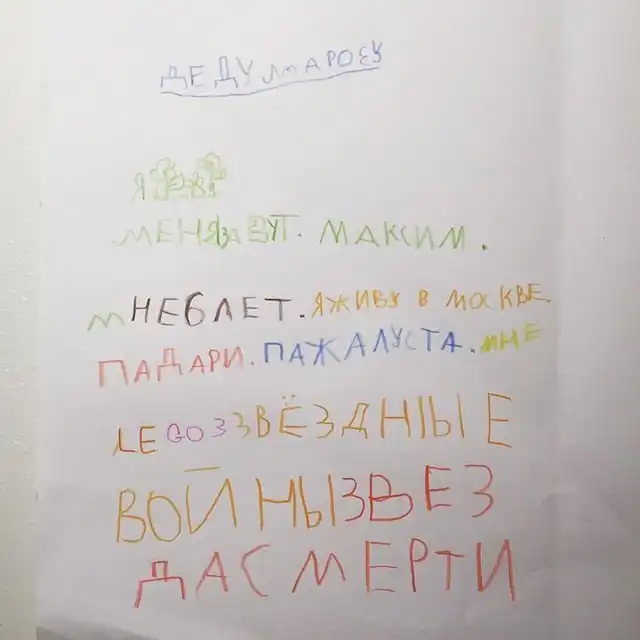 ДЕДУ МАРОЗУ
Я
МЕНЯ ЗАВУТ. МАКСИМ.
МНЕ 6 ЛЕТ. Я ЖИВУ В МОСКВЕ.
ПАДАРИ. ПАЖАЛУСТА. МНЕ
LEGO ЗЗВЁЗДНЫЕ
ВОЙНЫ ЗВЕЗ
ДА СМЕРТИ